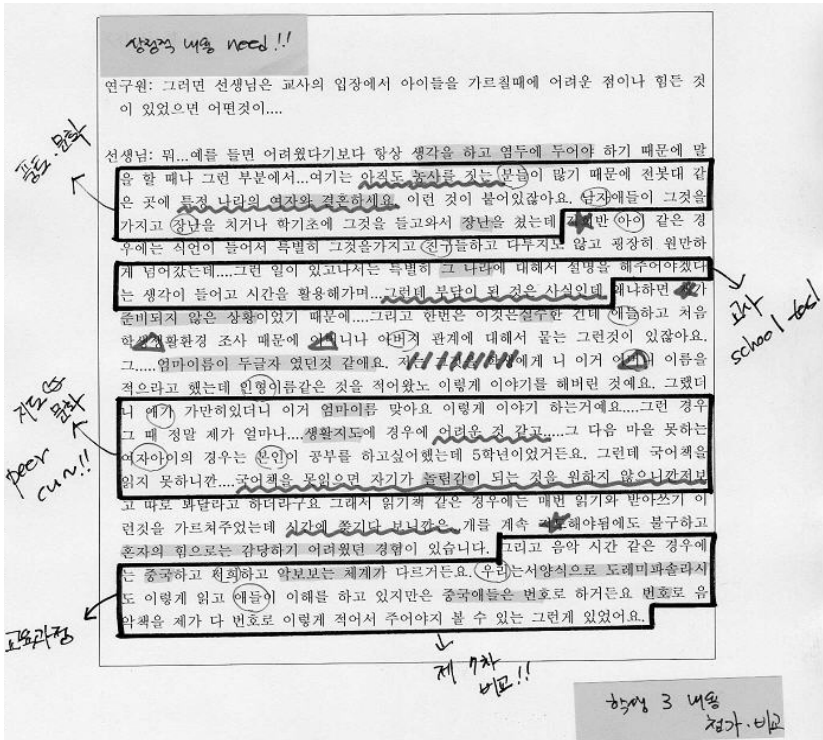 상징적 내용 need!!
연구원: 그러면 선생님은 교사의 입장에서 아이들을 가르칠때에 어려운 점이나 힘든 것
이 있었으면 어떤것이....
풍토·문화
선생님: 뭐...예를 들면 어려웠다기보다 항상 생각을 하고 염두에 두어야 하기 때문에 말
을 할 때나 그런 부분에서...여기는 아직도 농사를 짓는 분들이 많기 때문에 전봇대 같
은 곳에 특정 나라의 여자와 결혼하세요 이런 것이 붙어있잖아요. 남자애들이 그것을
가지고 장난을 치거나 학기초에 그것을 들고와서 장난을 쳤는데 반 아이 같은 경
우에는 식언이 들어서 특별히 그것을가지고 친구들하고 다투지도 않고 굉장히 원만하
게 넘어갔는데....그런 일이 있고나서는 특별히 그 나라에 대해서 설명을 해주어야겠다
는 생각이 들고 시간을 활용해가며...그런데 부담이 된 것은 사실인데 왜냐하면 가
준비되지 않은 상황이었기 때문에....그리고 한번은 이것은실수한 건데 애들하고 처음
교사
school
학생생활환경 조사 때문에 아버지 관계에 대해서 묻는 그런것이 있잖아요.
그.....엄마이름이 두글자 였던것 같애요. 에게 니 이거 이름을
적으라고 했는데 인형이름같은 것을 적어왔노 이렇게 이야기를 해버린 것예요. 그랬더
지도 문화
니 얘가 가만히있더니 이거 엄마이름 맞아요 이렇게 이야기 하는거예요....그런 경우
그 때 정말 제가 얼마나....생활지도에 경우에 어려운 것 같고.....그 다음 마을 못하는
peer
여자아이의 경우는 본인이 공부를 하고싶어했는데 5학년이었거든요. 그런데 국어책을
읽지 못하니깐....국어책을 못읽으면 자기가 놀림감이 되는 것을 원하지 않으니깐저보
고 따로 봐달라고 하더라구요 그래서 읽기책 같은 경우에는 매번 읽기와 받아쓰기 이
런것을 가르쳐주었는데 시간에 쫓기다 보니깐은 개를 계속 해야됨에도 불구하고
혼자의 힘으로는 감당하기 어려웠던 경험이 있습니다. 그리고 음악 시간 같은 경우에
는 중국하고 저희하고 악보보는 체계가 다르거든요. 우리는서양식으로 도레미파솔라시
도 이렇게 읽고 애들이 이해를 하고 있지만은 중국애들은 번호로 하거든요 번호로 음
악책을 제가 다 번호로 이렇게 적어서 주어야지 볼 수 있는 그런게 있었어요.
교육과정
제 7차
비교!!
학생 3 내용
첨가·비교